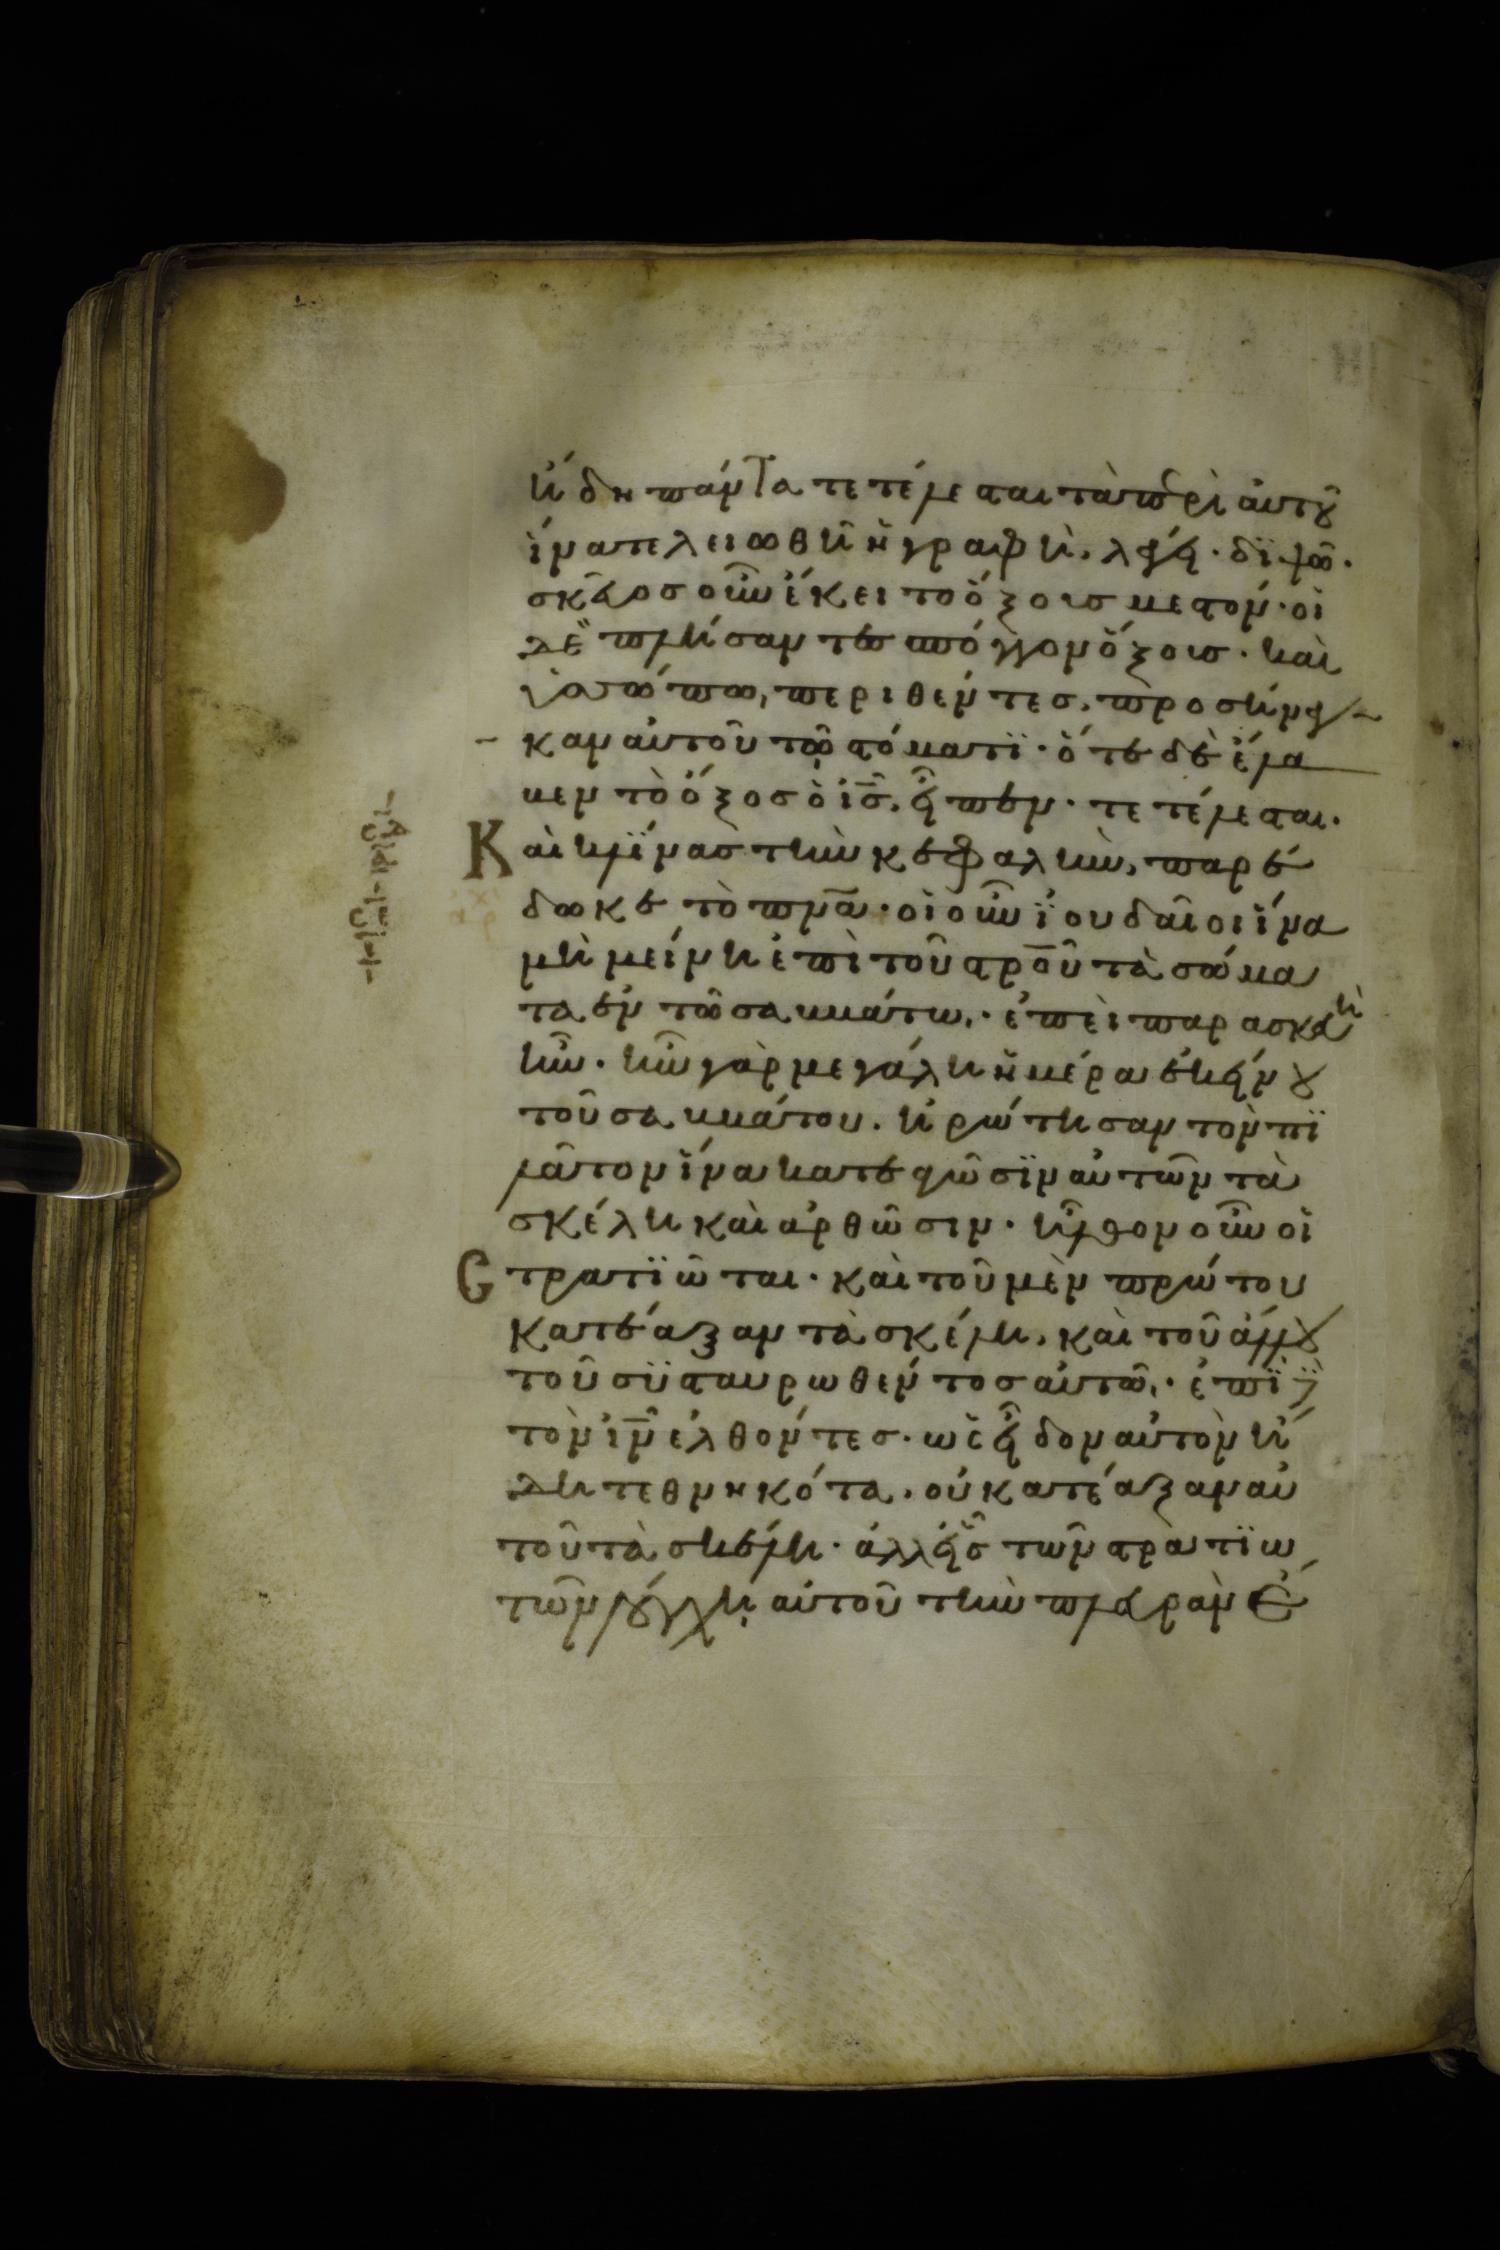 ἤδη πάντα τετέλεσται τὰ περὶ αὐτοῦ
ἵνα τελειωθῆ ἡ γραφὴ, λέγει · διψῶ ·
σκεῦος οὖν ἔκειτο ὄξους μεστόν · οἱ
δὲ πλήσαντες σπόγγον ὄξους · καὶ
ὑσώπω, περιθέντες, προσήνεγ
καν αὐτοῦ τῶ στόματι · ὅτε δὲ ἔλα
βεν τὸ ὄξος ὁ ισ, εἶπεν · τετέλεσται ·
Καὶ κλίνας τὴν κεφαλὴν, παρέ
δωκε τὸ πνα · οἱ οὖν ϊουδαῖοι ἵνα
μὴ μείνη ἐπὶ τοῦ στρου τὰ σώμα
τα ἐν τῶ σαββάτω · ἐπεὶ παρασκευὴ
ἦν · ἦν γὰρ μεγάλη ἡ μέρα ἐκείνου
τοῦ σαββάτου · ἠρώτησαν τὸν πι
λᾶτον ἵνα κατεαγῶσϊν αὐτῶν τὰ
σκέλη καὶ ἀρθῶσιν · ἦλθον οὖν οἱ
Στρατϊῶται · καὶ τοῦ μὲν πρώτου
κατέαξαν τὰ σκέλη, καὶ τοῦ ἄλλου
τοῦ συσταυρωθέντος αὐτῶ · ἐπὶ δὲ
τὸν ιν ἐλθόντες · ὡς εἶδον αὐτὸν ἤ
δη τεθνηκότα, οὐ κατέαξαν αὐ
τοῦ τὰ σκέλη · ἀλλ' εἷς τῶν στρατϊω
τῶν λόγχη αὐτοῦ τὴν πλευρὰν ἔ